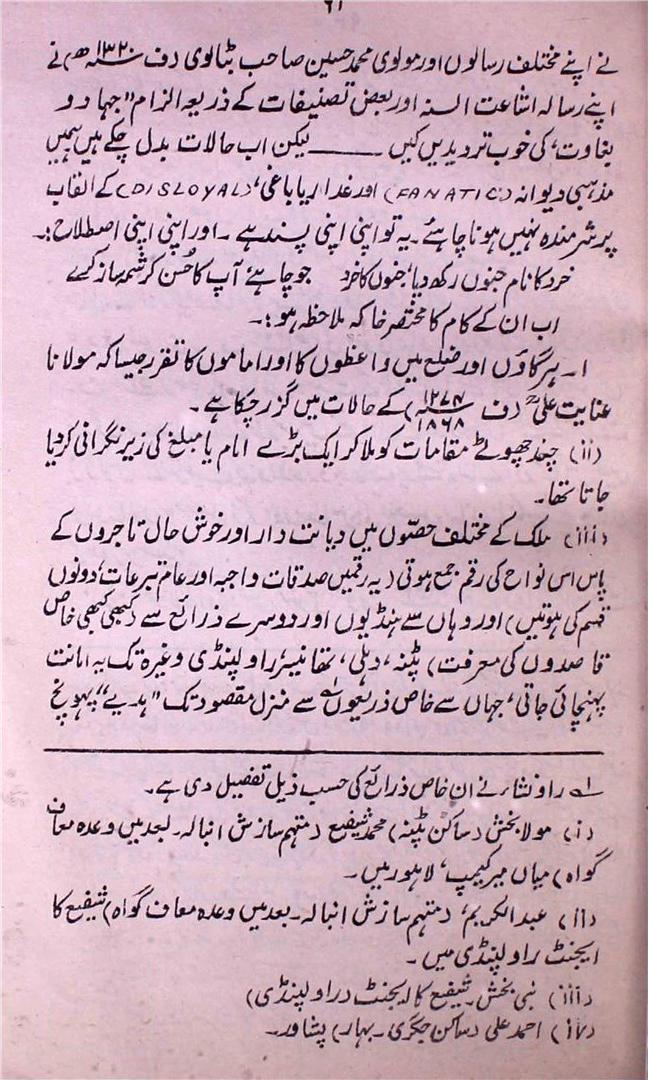 ۶۱
نے اپنے مختلف رسالوں اور مولوی محمد حسین صاحب بٹالوی (ف ۱۳۲۰ھ) نے
اپنے رسالہ اشاعت السنہ اور بعض تصنیفات کے ذریعہ الزام "جہاد و
بغاوت" کی خوب تردیدیں کیں ——— لیکن اب حالات بدل چکے ہیں ہمیں
مذہبی دیوانہ (FANATIC) اور غدار یا باغی، (DISLOYAL) کے القاب
پر شرمندہ نہیں ہونا چاہئے۔ یہ تو اپنی اپنی پسند ہے۔ اور اپنی اپنی اصطلاح:۔
خرد کا نام جنوں رکھ دیا، جنوں کا خرد جو چاہئے آپ کا حُسن کرشمہ ساز کرے
اب ان کے کام کا مختصر خاکہ ملاحظہ ہو:۔
۱۔ ہر گاؤں اور ضلع میں واعظوں کا اور اماموں کا تقرر جیسا کہ مولانا
عنایت علیؒ (ف ۱۲۷۴ ۱۸۶۸) کے حالات میں گزر چکا ہے۔
(ii) چند چھوٹے مقامات کو ملا کر ایک بڑے امام یا مبلغ کی زیر نگرانی کر دیا
جاتا تھا۔
(iii) ملک کے مختلف حصّوں میں دیانت دار اور خوش حال تاجروں کے
پاس اس نواح کی رقم جمع ہوتی (یہ رقمیں صدقات واجبہ اور عام تبرعات، دونوں
قسم کی ہوتیں) اور وہاں سے ہنڈیوں اور دوسرے ذرائع سے (کبھی کبھی خاص
قاصدوں کی معرفت) پٹنہ، دہلی، تھانیسر، راولپنڈی وغیرہ تک یہ امانت
پہنچائی جاتی، جہاں سے خاص ذریعوں۱ے سے منزل مقصود تک "ہدیے" پہونچ
۱ے راونشاء نے ان خاص ذرائع کی حسب ذیل تفصیل دی ہے۔
(i) مولا بخش (ساکن پٹنہ) محمد شفیع (متہم سازش انبالہ۔ بعد میں وعدہ معاف
گواہ) میاں میر کیمپ، لاہور میں۔
(ii) عبدالکریم، (متہم سازش انبالہ۔ بعد میں وعدہ معاف گواہ) شفیع کا
ایجنٹ راولپنڈی میں۔
(iii) نبی بخش۔ شفیع کا ایجنٹ (راولپنڈی)
(iv) احمد علی (ساکن جگری۔ بہار) پشاور۔